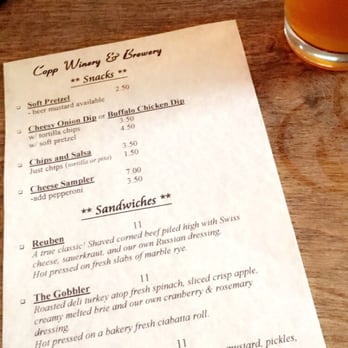 Copp Winery & Brewery
** Snacks **
Soft Pretzel 2.50
- beer mustard available
Cheesy Onion Dip or Buffalo Chicken Dip
w/ tortilla chips 3.50
w/ soft pretzel 4.50
Chips and Salsa 3.50
Just chips (tortilla or pita) 1.50
Cheese Sampler 7.00
-add pepperoni 3.50
** Sandwiches **
Reuben 11
A true classic! Shaved corned beef piled high with Swiss
cheese, sauerkraut, and our own Russian dressing.
Hot pressed on fresh slabs of marble rye.
The Gobbler 11
Roasted deli turkey atop fresh spinach, sliced crisp apple,
creamy melted brie and our own cranberry & rosemary
dressing.
Hot pressed on a bakery fresh ciabatta roll.
11
mustard, pickles,